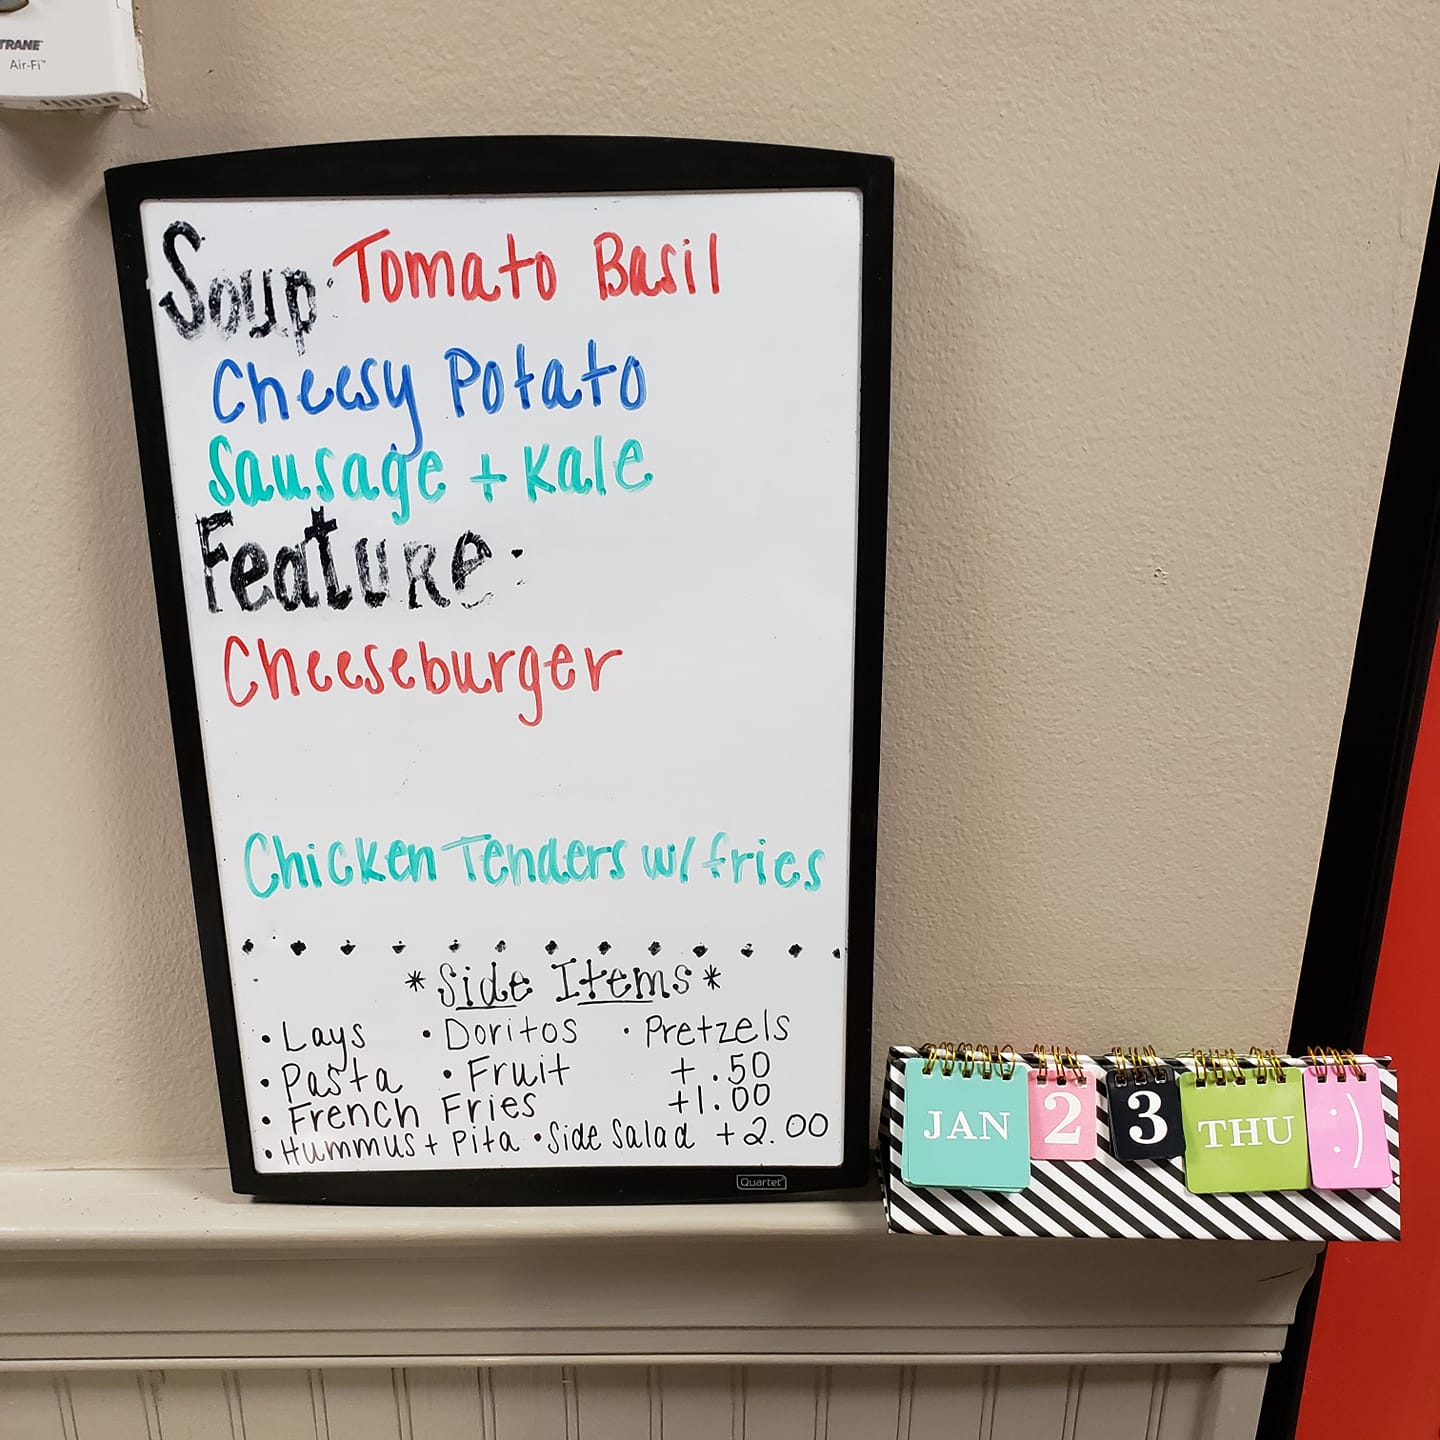 TRANE
Air-Fi™
Soup: Tomato Basil
Cheesy Potato
Sausage + Kale
Feature:
Cheeseburger
Chicken Tenders w/ fries
*Side Items*
• Lays • Doritos • Pretzels
• Pasta • Fruit + .50
• French Fries +1.00
• Hummus + Pita • Side Salad +2.00
Quartet
JAN 2 3 THU :)